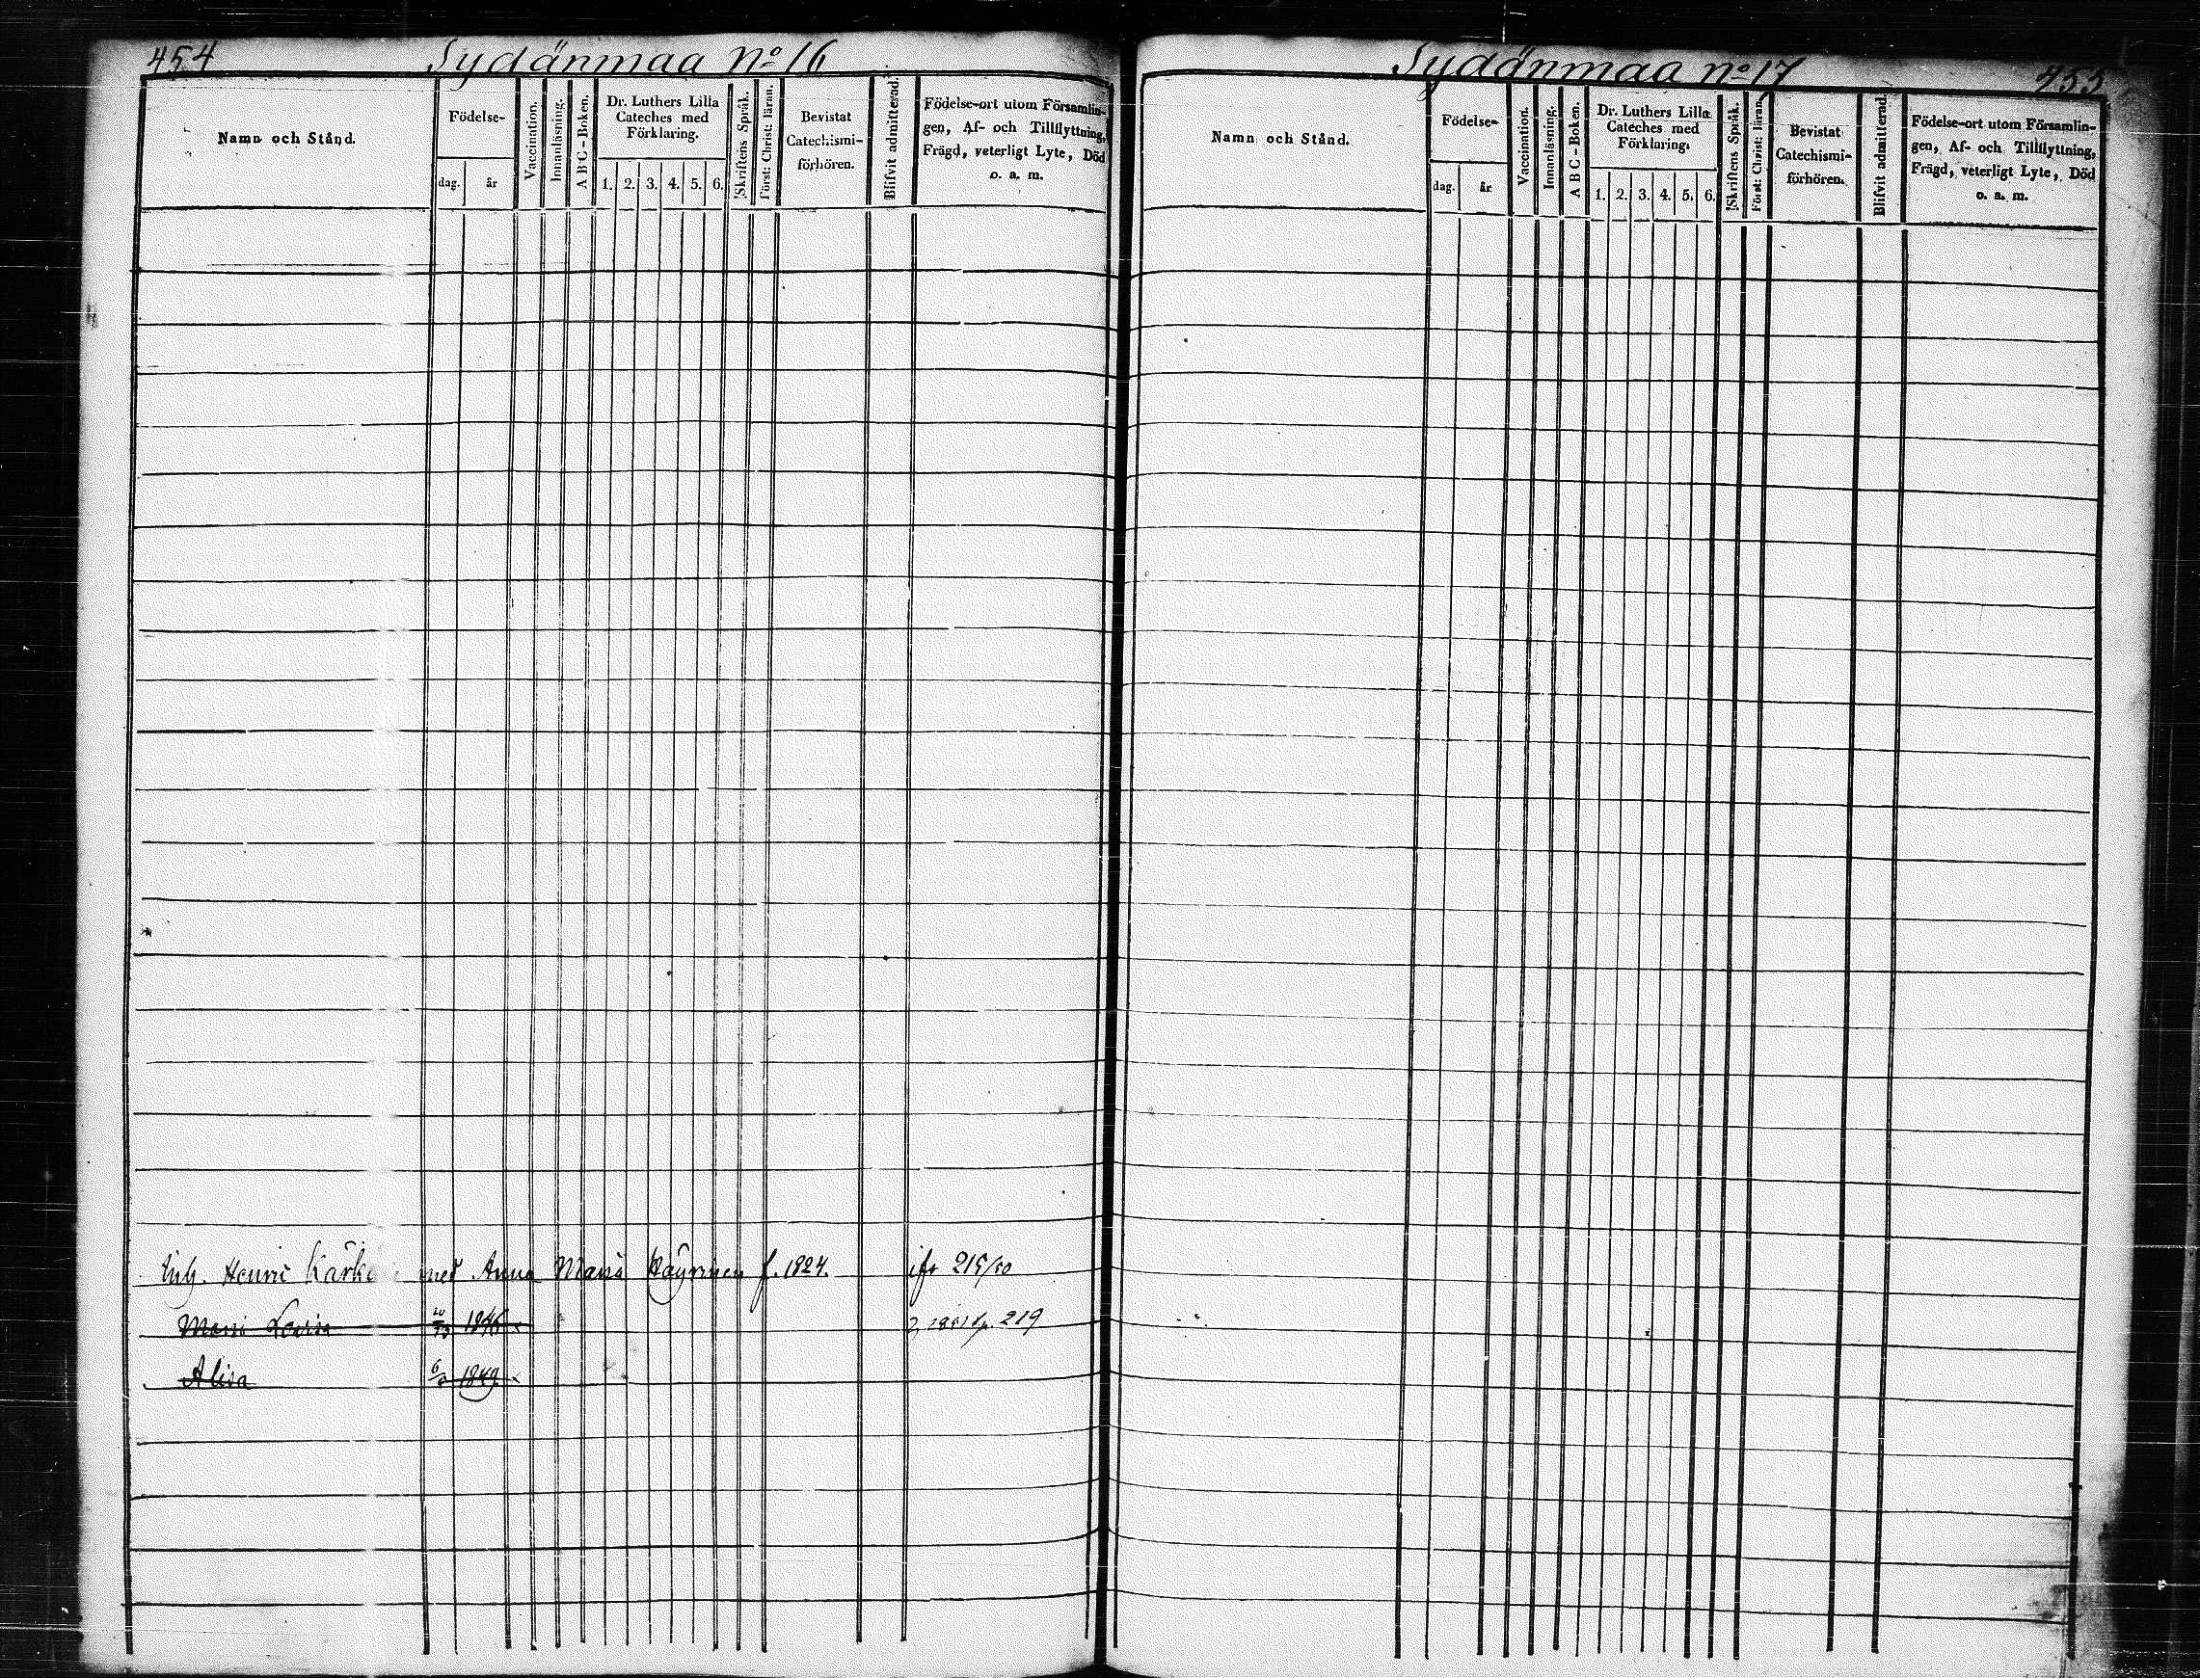 454 Sydänmaa No 16
Namn och Stånd.
Födelse-
dag. år
Vaccination.
Innanläsning.
A B C - Boken.
Dr. Luthers Lilla
Cateches med
Förklaring.
1. 2. 3. 4. 5. 6.
Skriftens Språk.
Först: Christ: läran.
Bevistat
Catechismi-
förhören.
Blifvit admitterad.
Födelse-ort utom Församlin-
gen, Af- och Tillflyttning,
Frägd, veterligt Lyte, Död
o. a. m.
Inh. Henric med Anna Maria f. 1824. 219/50
Maria Lovisa 1846 x 1851 p. 219
Alisa 6 1849 x
Sydänmaa no 17 455
Namn och Stånd.
Födelse-
dag. år
Vaccination.
Innanläsning.
A B C - Boken.
Dr. Luthers Lilla
Cateches med
Förklaring.
1. 2. 3. 4. 5. 6.
Skriftens Språk.
Först: Christ: läran.
Bevistat
Catechismi-
förhören.
Blifvit admitterad.
Födelse-ort utom Församlin-
gen, Af- och Tillflyttning,
Frägd, veterligt Lyte, Död
o. a. m.